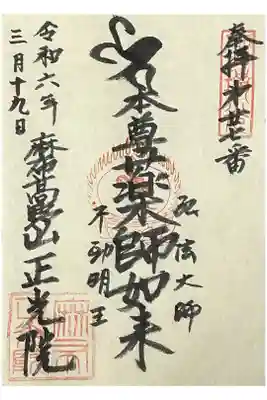 奉拝
番
本尊薬師如来
弘法大師
不動明王
山 正光院
令和六年
三月十九日